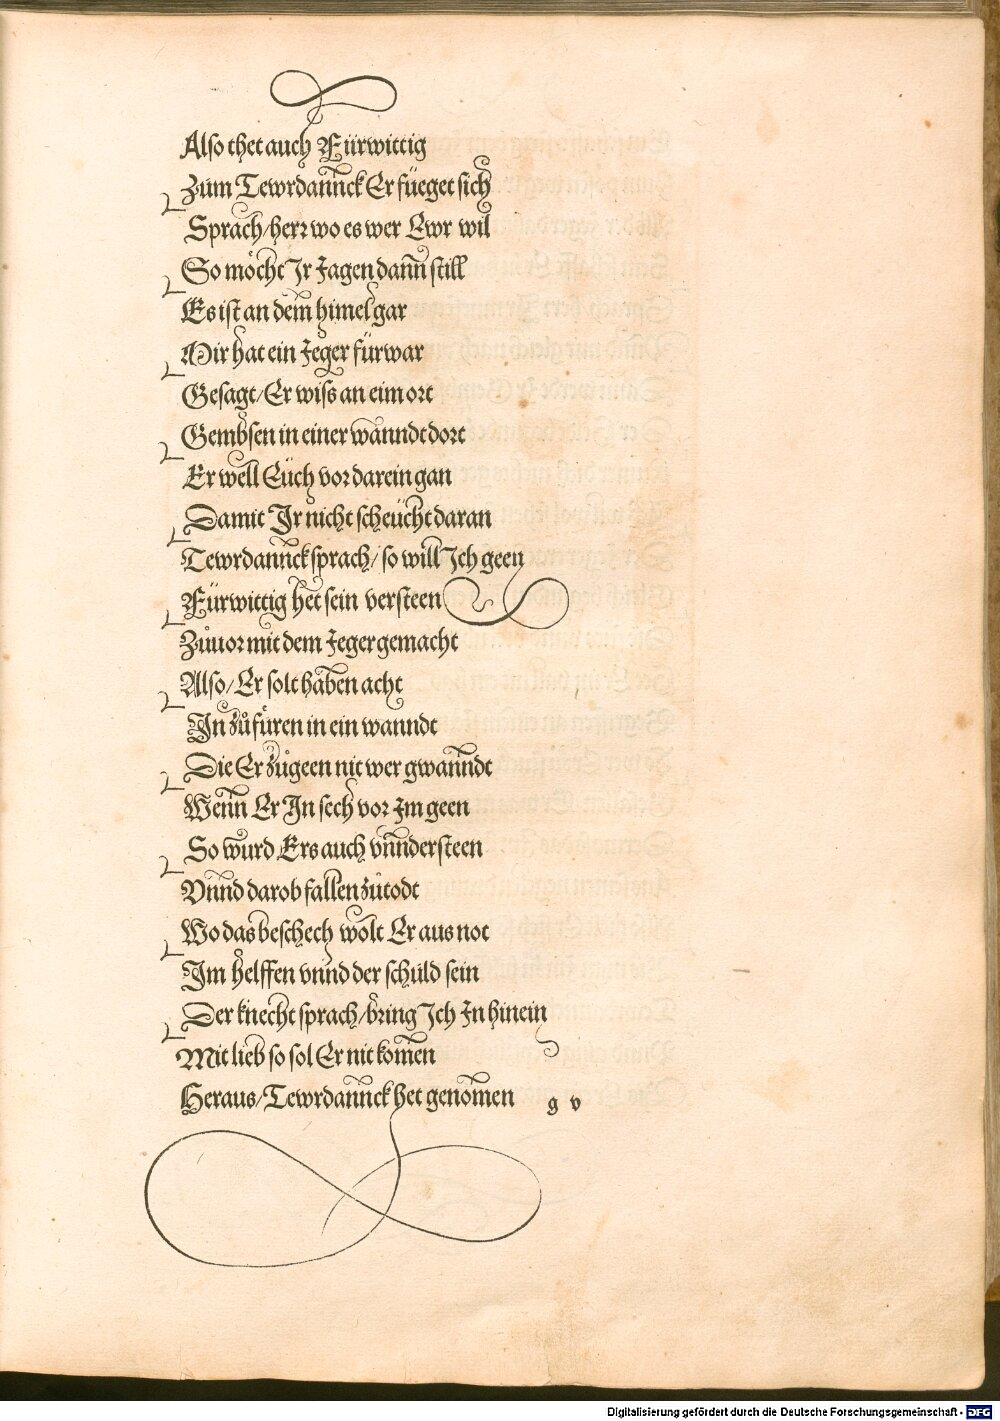 Also thet auch Fürwittig
Zům Tewrdannck Er füeget sich
Sprach/herr wo es wer Ewr wil
So möcht Jr Jagen dann still
Es ist an dem himel gar
Mir hat ein Jeger fürwar
Gesagt/Er wiss an eim ort
Gembsen in einer wanndt dort
Er well Eüch vor darein gan
Damit Jr nicht scheücht daran
Tewrdannck sprach/so will Jch geen
Fürwittig het sein versteen
Zůuor mit dem Jeger gemacht
Also/Er solt haben acht
Jn zůfüren in ein wanndt
Die Er zůgeen nit wer gwanndt
Wenn Er Jn sech vor Jm geen
So wurd Ers auch vnndersteen
Vnnd darob fallen zůtodt
Wo das beschech wolt Er aus not
Jm helffen vnnd der schuld sein
Der knecht sprach/bring Jch Jn hinein
Mit lieb so sol Er nit komen
Heraus/Tewrdannck het genomen
g v
Digitalisierung gefördert durch die Deutsche Forschungsgemeinschaft - DFG